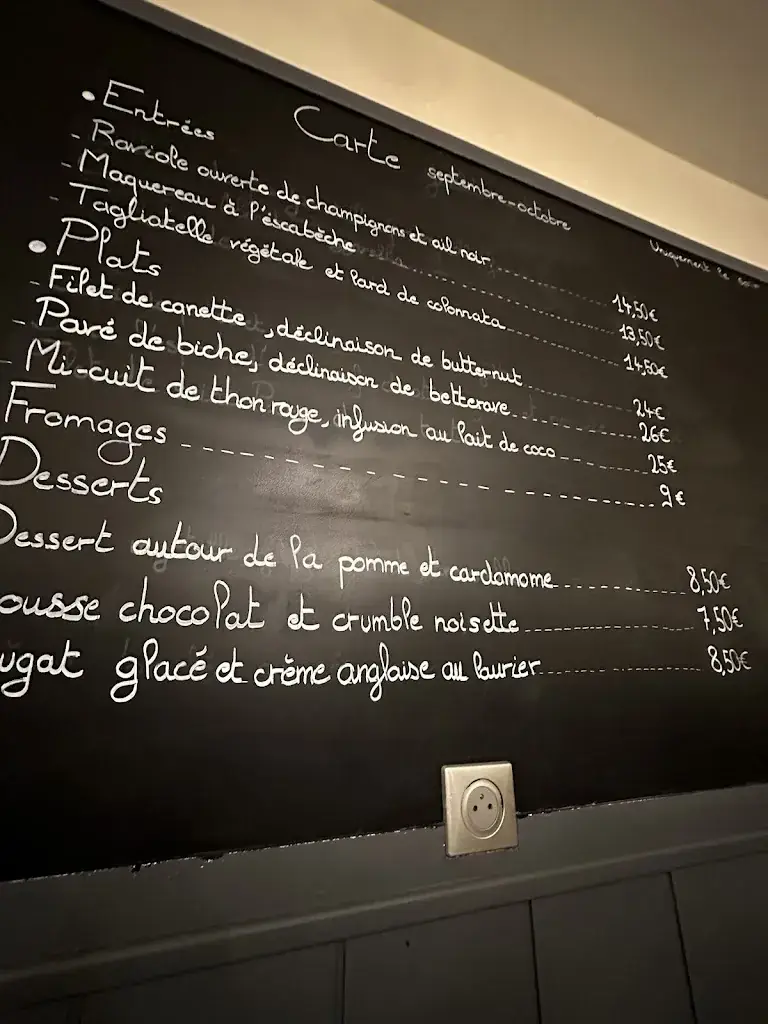 Carte septembre-octobre
Uniquement le soir
• Entrées
- Raviole ouverte de champignons et ail noir 14,50€
- Maquereau à l'éscabèche 13,50€
- Tagliatelle végétale et lard de colonnata 14,50€
• Plats
- Filet de canette, déclinaison de butternut 24€
- Pavé de biche, déclinaison de betterave 26€
- Mi-cuit de thon rouge, infusion au lait de coco 25€
Fromages 9€
Desserts
Dessert autour de la pomme et cardamome 8,50€
ousse chocolat et crumble noisette 7,50€
ugat glacé et crème anglaise au laurier 8,50€